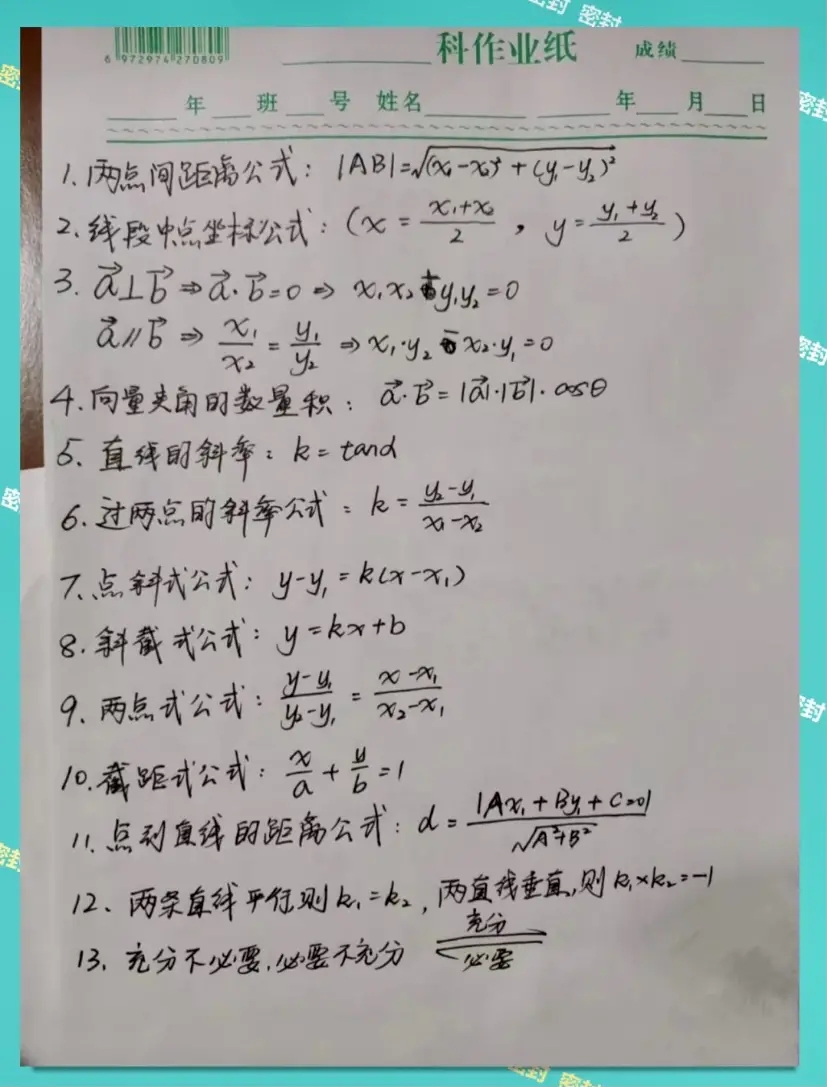 密封 密封
6 972974 270809
科作业纸 成绩
年 班 号 姓名 年 月 日
1. 两点间距离公式: |AB|=√(x₁-x₂)²+(y₁-y₂)²
2. 线段中点坐标公式: (x=\frac{x₁+x₂}{2}, y=\frac{y₁+y₂}{2})
3. \vec{a}⊥\vec{b}⇒\vec{a}·\vec{b}=0⇒ x₁x₂+y₁y₂=0
\vec{a}∥\vec{b}⇒\frac{x₁}{x₂}=\frac{y₁}{y₂}⇒x₁·y₂-x₂·y₁=0
4. 向量夹角的数量积: \vec{a}·\vec{b}=|\vec{a}|·|\vec{b}|·cosθ
5. 直线的斜率: k=tanα
6. 过两点的斜率公式: k=\frac{y₂-y₁}{x₁-x₂}
7. 点斜式公式: y-y₁=k(x-x₁)
8. 斜截式公式: y=kx+b
9. 两点式公式: \frac{y-y₁}{y₂-y₁}=\frac{x-x₁}{x₂-x₁}
10. 截距式公式: \frac{x}{a}+\frac{y}{b}=1
11. 点到直线的距离公式: d=\frac{|Ax₁+By₁+C=0|}{√A²+B²}
12、两条直线平行则k₁=k₂, 两直线垂直,则k₁×k₂=-1
13、充分不必要,必要不充分 充分 必要
密封
密封
密封
密封
密封 密封